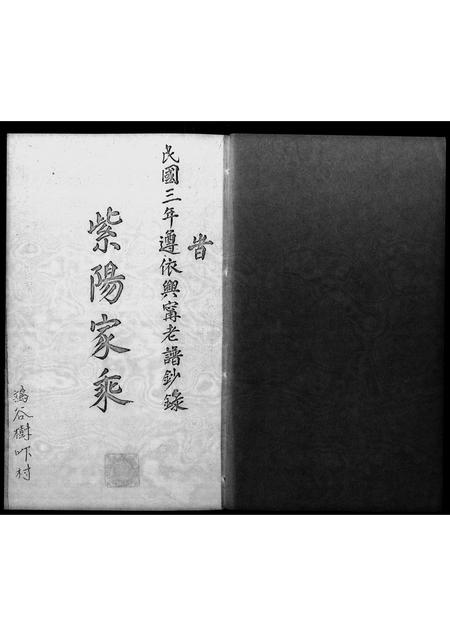 昔
民國三年遵依興甯老譜鈔錄
紫陽家乘
鴻谷樹吓村